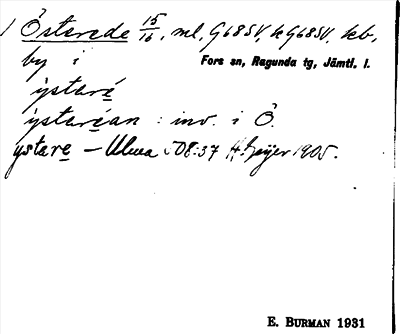 1 Österede 15/16, ml, G68SV, kG68SV, keb,
by i Fors sn, Ragunda tg, Jämtl. l.
ystaré
ystaréan : inv. i Ö.
ystare – Ulma 508:37 H. Geijer 1905.
E. BURMAN 1931